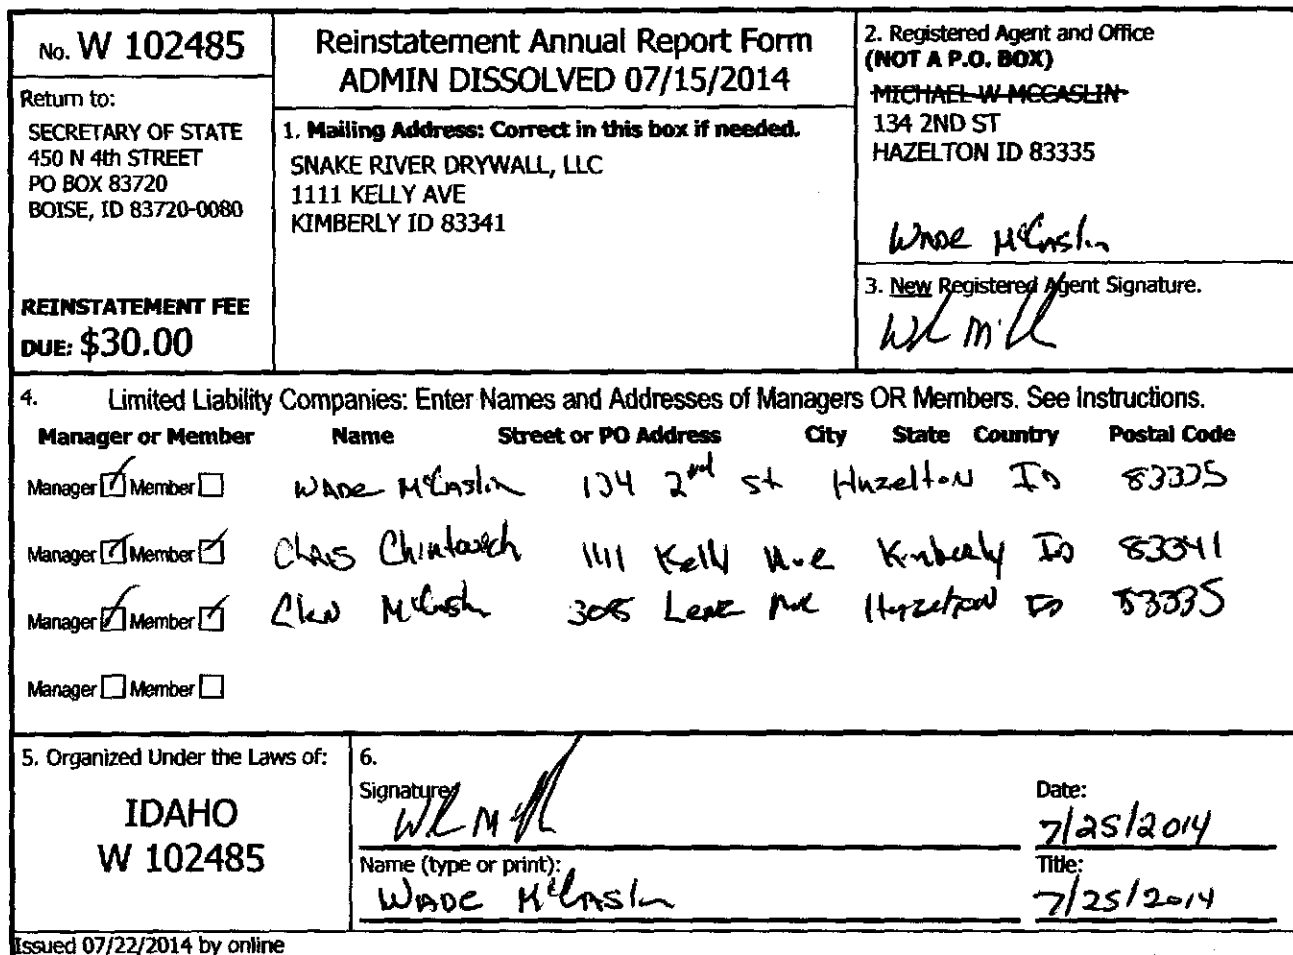 No. W 102485
Return to:
SECRETARY OF STATE
450 N 4th STREET
PO BOX 83720
BOISE, ID 83720-0080
REINSTATEMENT FEE
DUE: $30.00
Reinstatement Annual Report Form
ADMIN DISSOLVED 07/15/2014
1. Mailing Address: Correct in this box if needed.
SNAKE RIVER DRYWALL, LLC
1111 KELLY AVE
KIMBERLY ID 83341
2. Registered Agent and Office
(NOT A P.O. BOX)
MICHAEL W MCCASLIN
134 2ND ST
HAZELTON ID 83335
Wade McCaslin
3. New Registered Agent Signature.
4. Limited Liability Companies: Enter Names and Addresses of Managers OR Members. See Instructions.
Manager or Member Name Street or PO Address City State Country Postal Code
Manager Member Wade McCaslin 134 2nd St Hazelton ID 83335
Manager Member Chris 1111 Kelly Ave Kimberly ID 83341
Manager Member McCaslin Ave Hazelton ID 83335
Manager Member
5. Organized Under the Laws of:
IDAHO
W 102485
6.
Signature:
Date:
7/25/2014
Name (type or print):
Wade McCaslin
Title:
7/25/2014
Issued 07/22/2014 by online